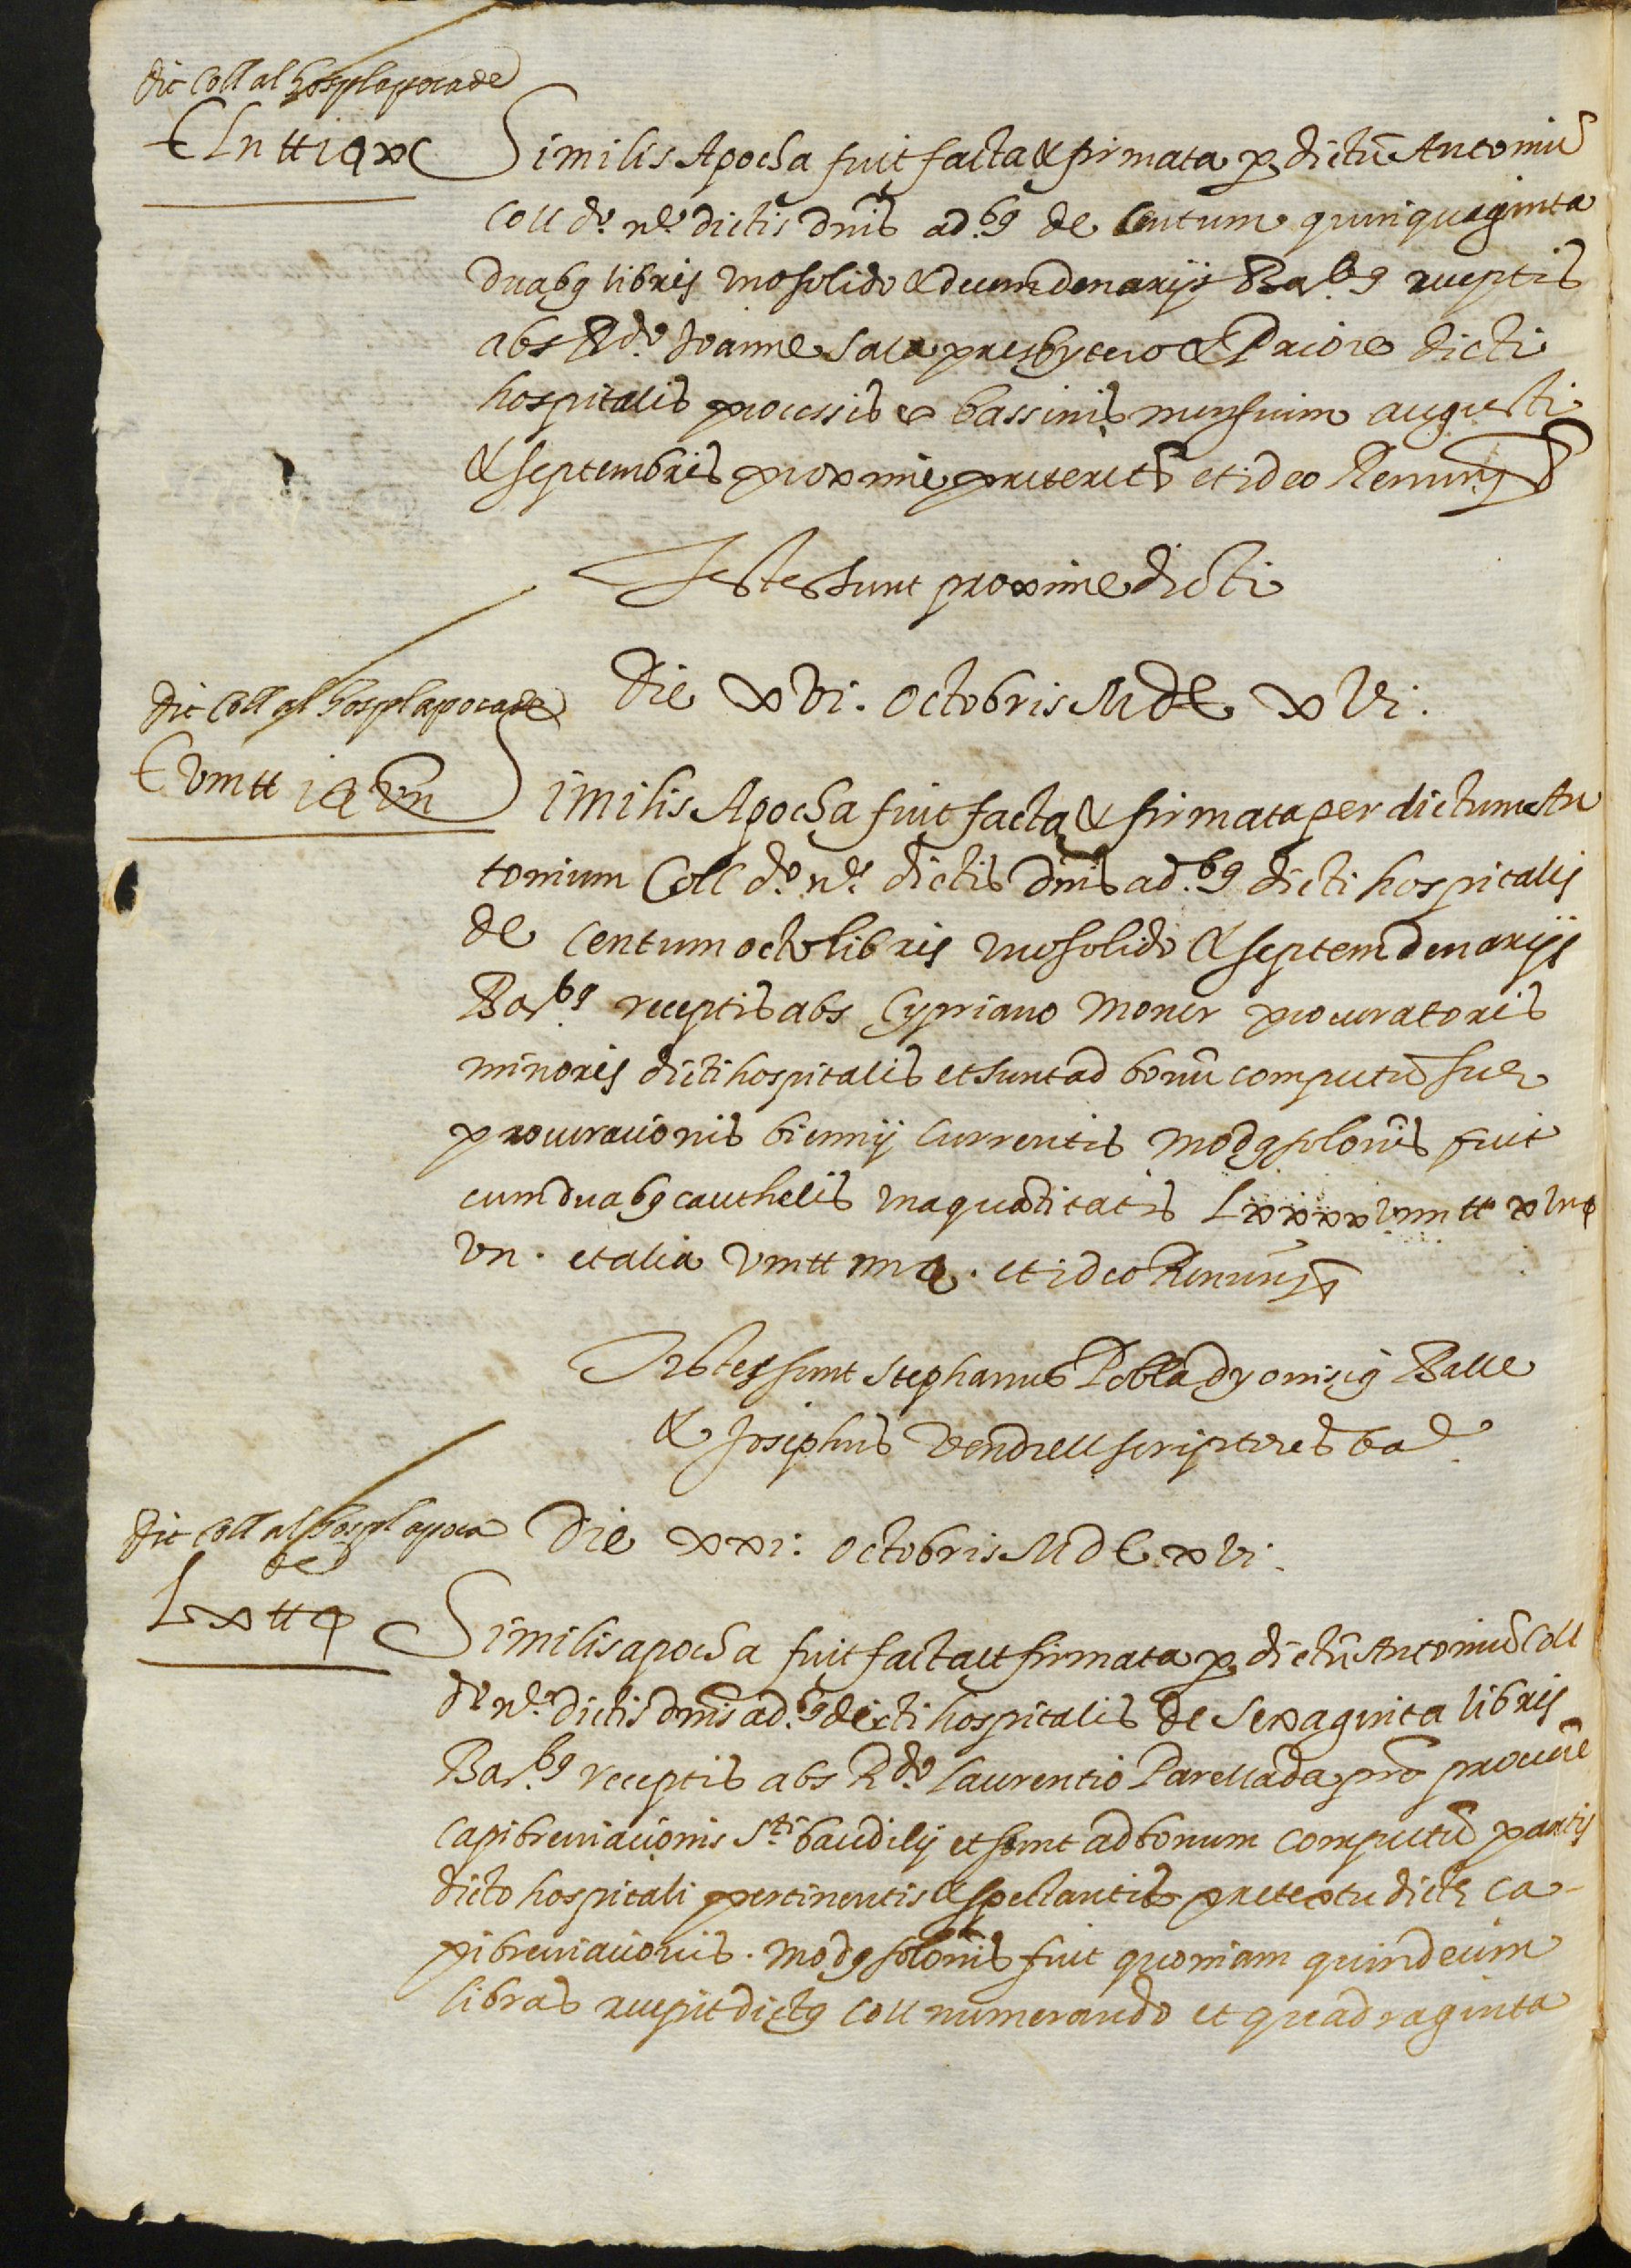 dit Coll al hospl apoca de
CLII ₶ i ꝯ x
Similis Apocha fuit facta & firmata p dictū Antoniū
Coll dº nº dictis dnis ad.bꝯ de Centum quinquaginta
duabꝯ libris uno solido & decem denarijs Bar.bꝯ receptis
abs Rdo Joanne Sala presbytero & Priore dicti
hospitalis processis e bassinis mensium augusti
& septembris proxime preterit et ideo Renun
Testes sunt proxime dicti
dit Coll al hospl apoca de
Die xvi. octobris MDC xvi.
CVIII ₶ i ꝯ vii
Similis Apocha fuit facta & firmata per dictum An
tonium Coll dº nº dictis dnis ad.bꝯ dicti hospitalis
de Centum octo libris uno solido & septem denarijs
Bar.bꝯ receptis abs Cypriano Moner procuratoris
minoris dicti hospitalis et sunt ad bonū computū sue
procurationis biennij currentis modꝯ solonis fuit
cum duabꝯ cauthelis una quātitatis Lxxxxviiii ₶ xviiꝯ
vii. et alia viii ₶ iiii ꝯ. et ideo Renun
Testes sunt Stephanus Pobla dyonisiꝯ Balle
& Josephus Vendrell scriptores ba
dit Coll al hospl apoca
de
Die xxi. octobris MDC xvi.
Lx ₶ ꝯ
Similis apocha fuit facta et firmata p dictū Antoniū Coll
dº nº dictis dnis ad.bꝯ dicti hospitalis de Sexaginta libris
Bar.bꝯ receptis abs Rdo Laurentio Parellada pro
capibreviationis Sti baudilij et sunt ad bonum computū partis
dicto hospitali pertinentis & spectantis pretextu dicte ca-
pibreviationis. modꝯ solonis fuit quoniam quindecim
libras recepit dictꝯ Coll numerando et quadraginta